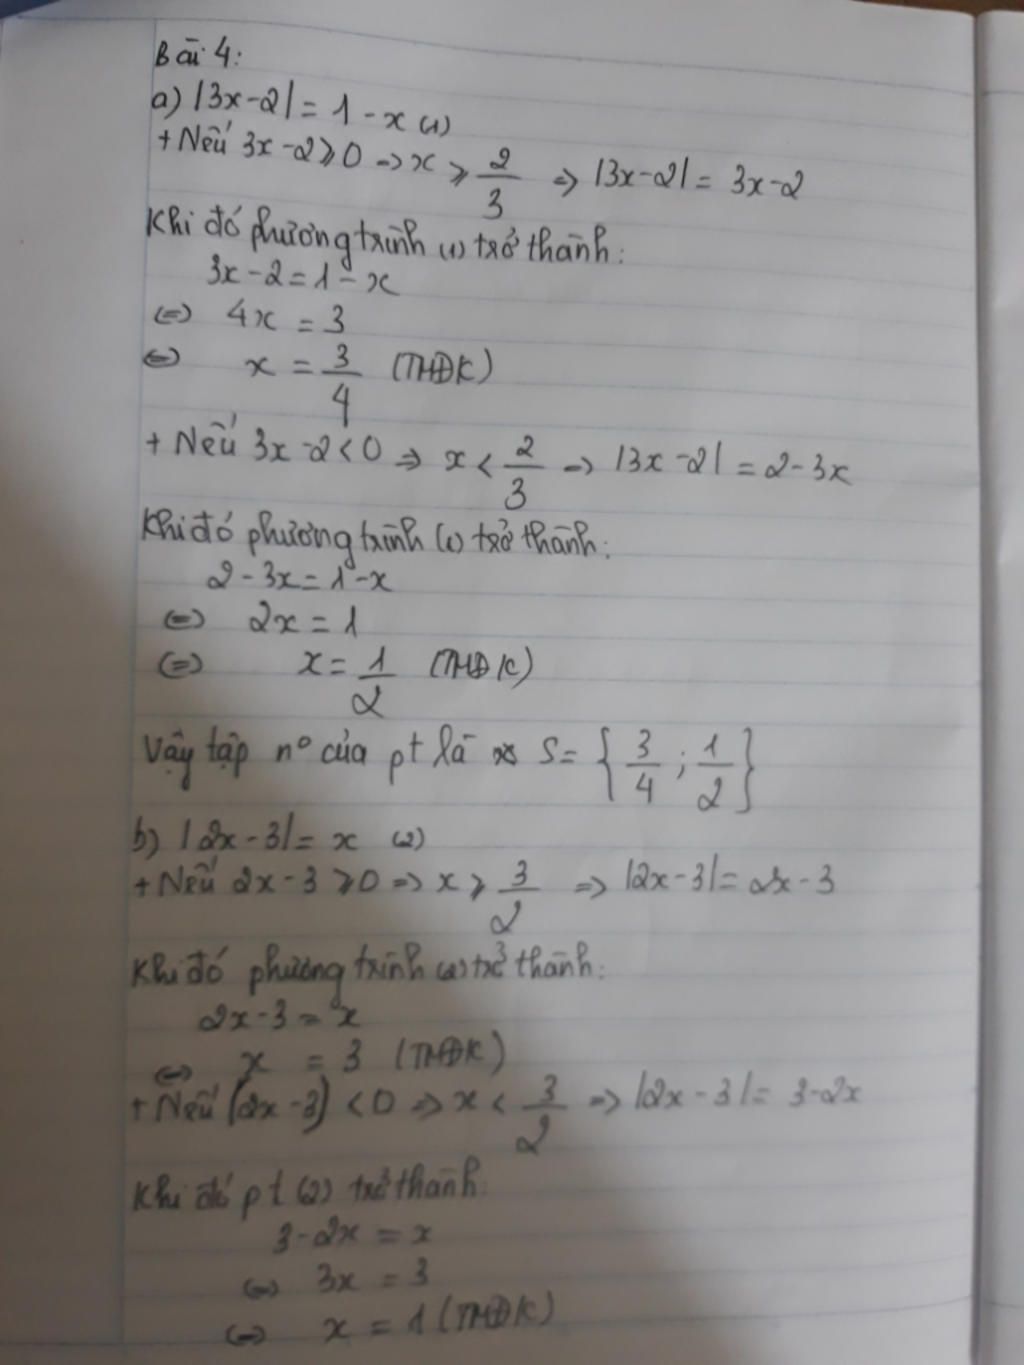 Bài 4:
a) |3x-2| = 1 - x (1)
+ Nếu 3x-2 ≥ 0 → x ≥ 2/3 ⇒ |3x-2| = 3x-2
Khi đó phương trình (1) trở thành:
3x-2 = 1 - x
⇔ 4x = 3
⇔ x = 3/4 (TMĐK)
+ Nếu 3x-2 < 0 ⇒ x < 2/3 ⇒ |3x-2| = 2-3x
Khi đó phương trình (1) trở thành:
2-3x = 1-x
⇔ 2x = 1
⇔ x = 1/2 (TMĐK)
Vậy tập nº của pt là S = {3/4; 1/2}
b) |2x-3| = x (2)
+ Nếu 2x-3 ≥ 0 ⇒ x ≥ 3/2 ⇒ |2x-3| = 2x-3
Khi đó phương trình (2) trở thành:
2x-3 = x
⇔ x = 3 (TMĐK)
+ Nếu (2x-3) < 0 ⇒ x < 3/2 ⇒ |2x-3| = 3-2x
Khi đó pt (2) trở thành:
3-2x = x
⇔ 3x = 3
⇔ x = 1 (TMĐK)